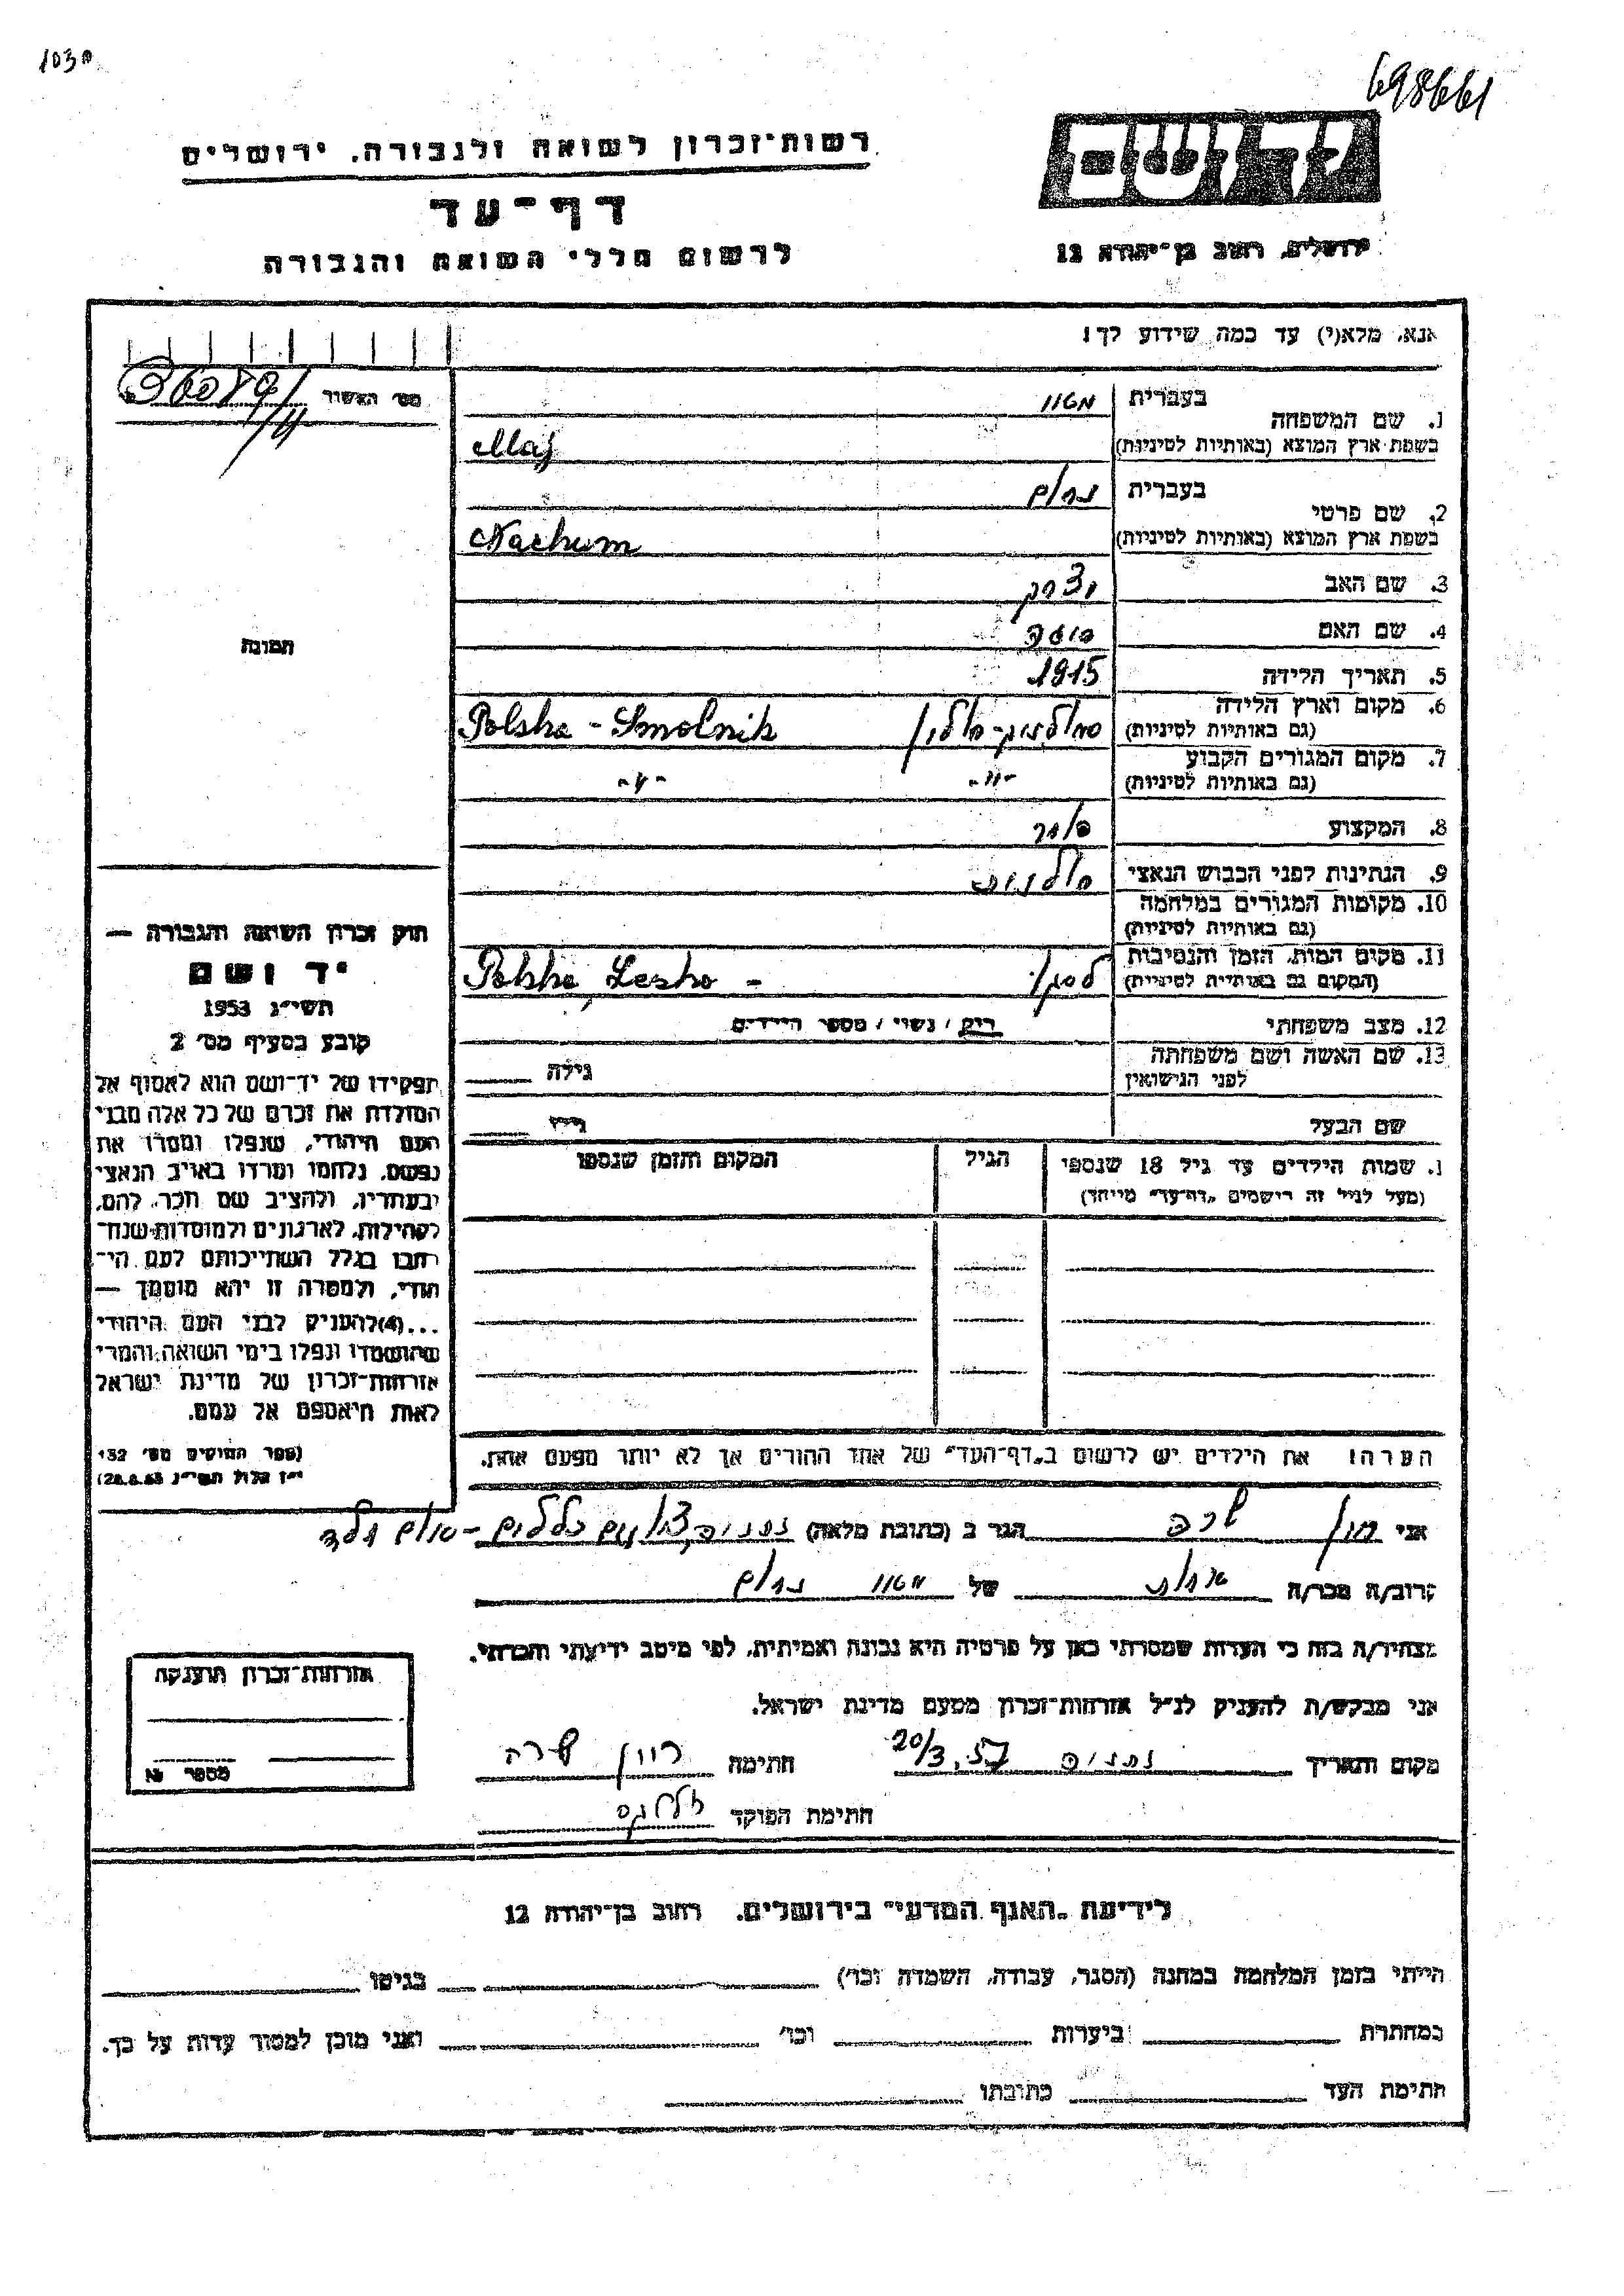 103ח
698661
יד ושם
ירושלים, רחוב בן־יהודה 12
רשות־זכרון לשואה ולגבורה, ירושלים
דף־עד
לרשום חללי השואה והגבורה
אנא, מלא(י) עד כמה שידוע לך!
מס׳ האשור
תמונה
1. שם המשפחה
בעברית
בשפת ארץ המוצא (באותיות לטיניות)
Maj
2. שם פרטי
בעברית נחום
בשפת ארץ המוצא (באותיות לטיניות) Nachum
3. שם האב יצחק
4. שם האם
5. תאריך הלידה 1915
6. מקום וארץ הלידה
(גם באותיות לטיניות) סמולניק-פולין Polska - Smolnik
7. מקום המגורים הקבוע
(גם באותיות לטיניות) -"- -"-
8. המקצוע סוחר
9. הנתינות לפני הכבוש הנאצי פולנית
10. מקומות המגורים במלחמה
(גם באותיות לטיניות)
11. מקום המות, הזמן והנסיבות
(המקום גם באותיות לטיניות) לסקו Polska, Lesko -
12. מצב משפחתי רוק / נשוי / מספר הילדים
13. שם האשה ושם משפחתה
לפני הנישואין גילה
שם הבעל גילו
שמות הילדים עד גיל 18 שנספו
(מעל לגיל זה רישמים „דף־עד" מייחד)
הגיל
המקום והזמן שנספו
הערה! את הילדים יש לרשום ב„דף־העד" של אחד ההורים אך לא יותר מפעם אחת.
חוק זכרון השואה והגבורה —
יד ושם
תשי״ג 1953
קובע בסעיף מס׳ 2
תפקידו של יד־ושם הוא לאסוף אל
המולדת את זכרם של כל אלה מבני
העם היהודי, שנפלו ומסרו את
נפשם, נלחמו ומרדו באויב הנאצי
ובעוזריו, ולהציב שם וזכר להם,
לקהילות, לארגונים ולמוסדות שנח־
רבו בגלל השתייכותם לעם הי־
הודי, ולמטרה זו יהא מוסמך —
...(4)להעניק לבני העם היהודי
שהושמדו ונפלו בימי השואה והמרי
אזרחות־זכרון של מדינת ישראל
לאות היאספם אל עמם.
(ספר החוקים מס׳ 132
י״ז אלול תשי״ג 28.8.53)
אני שרה הגר ב (כתובת מלאה) נתניה,
קרוב/ה מכר/ה אחות של נחום
מצהיר/ה בזה כי העדות שמסרתי כאן על פרטיה היא נכונה ואמיתית, לפי מיטב ידיעתי והכרתי.
אני מבקש/ת להעניק לנ״ל אזרחות־זכרון מטעם מדינת ישראל.
מקום ותאריך נתניה 20/3.57 חתימה שרה
חתימת הפוקד
אזרחות־זכרון הוענקה
מספר №
לידיעת „האגף המדעי" בירושלים, רחוב בן־יהודה 12
הייתי בזמן המלחמה במחנה (הסגר, עבודה, השמדה וכו׳) בגיטו
במחתרת ביערות וכו׳ ואני מוכן למסור עדות על כך.
חתימת העד כתובתו